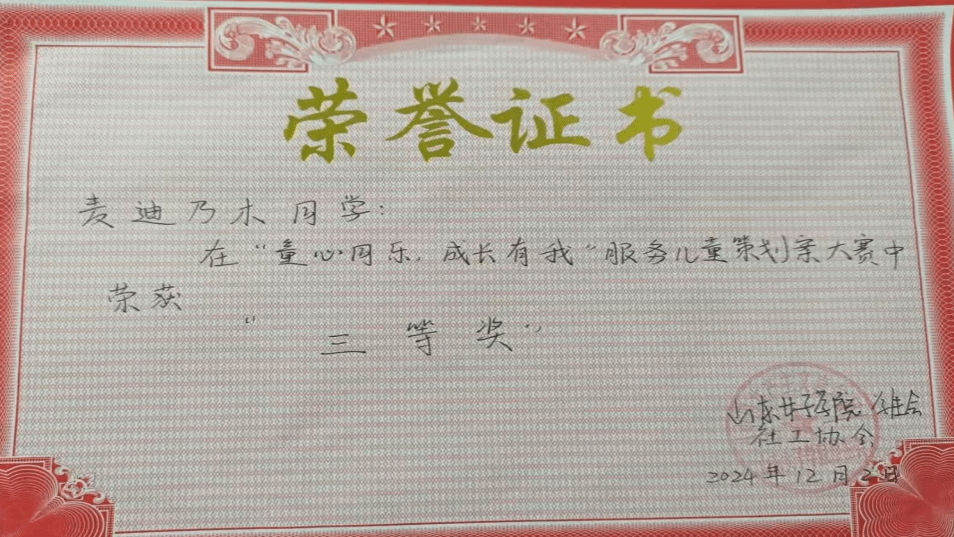 荣誉证书
麦迪乃木 同学：
在“童心同乐，成长有我”服务儿童策划案大赛中
荣获
“三等奖”
山东女子学院
社工协会
2024年12月2日